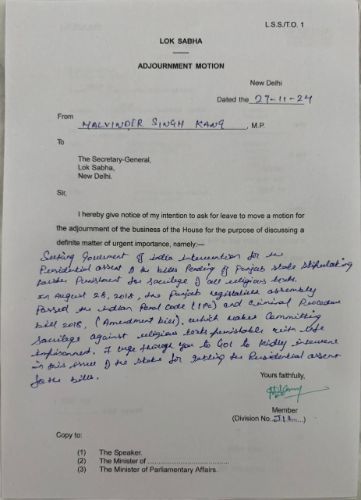 L.S.S./T.O. 1
LOK SABHA
ADJOURNMENT MOTION
New Delhi
Dated the 27-11-24
From
MALVINDER SINGH KANG, M.P.
To
The Secretary-General,
Lok Sabha,
New Delhi.
Sir,
I hereby give notice of my intention to ask for leave to move a motion for
the adjournment of the business of the House for the purpose of discussing a
definite matter of urgent importance, namely:—
Seeking Government of India intervention for the
Presidential assent of the bills Pending of Punjab state stipulating
Punishment for sacrilege of all religious texts.
on August 28, 2018, the Punjab legislative assembly
Passed the Indian Penal Code (IPC) and Criminal Procedure
bill 2018, (Amendment bill), which makes Committing
sacrilege against religious texts punishable with life
imprisonment. I urge through you to GOI to kindly intervene
in this issue of the state for getting the Presidential assent
for the bills.
Yours faithfully,
Member
(Division No.
Copy to:
(1) The Speaker.
(2) The Minister of
(3) The Minister of Parliamentary Affairs.